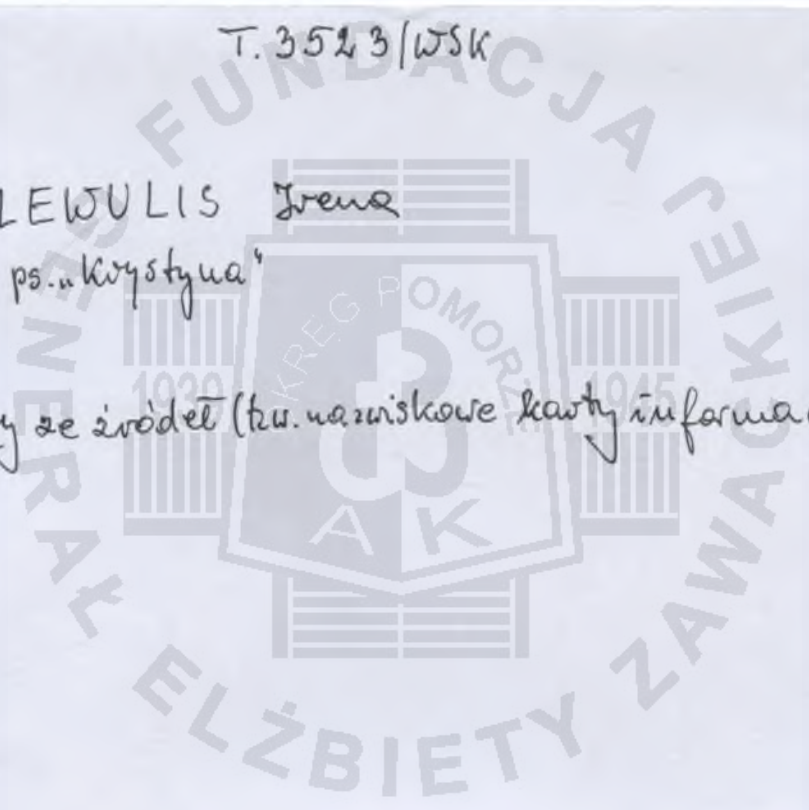 T. 3523/WSK
LEWULIS Irena
ps. „Krystyna"
y ze źródeł (tzw. nazwiskowe karty informa
FUNDACJA GENERAŁ ELŻBIETY ZAWACKIEJ
OKRĘG POMORZE
1939 1945
AK